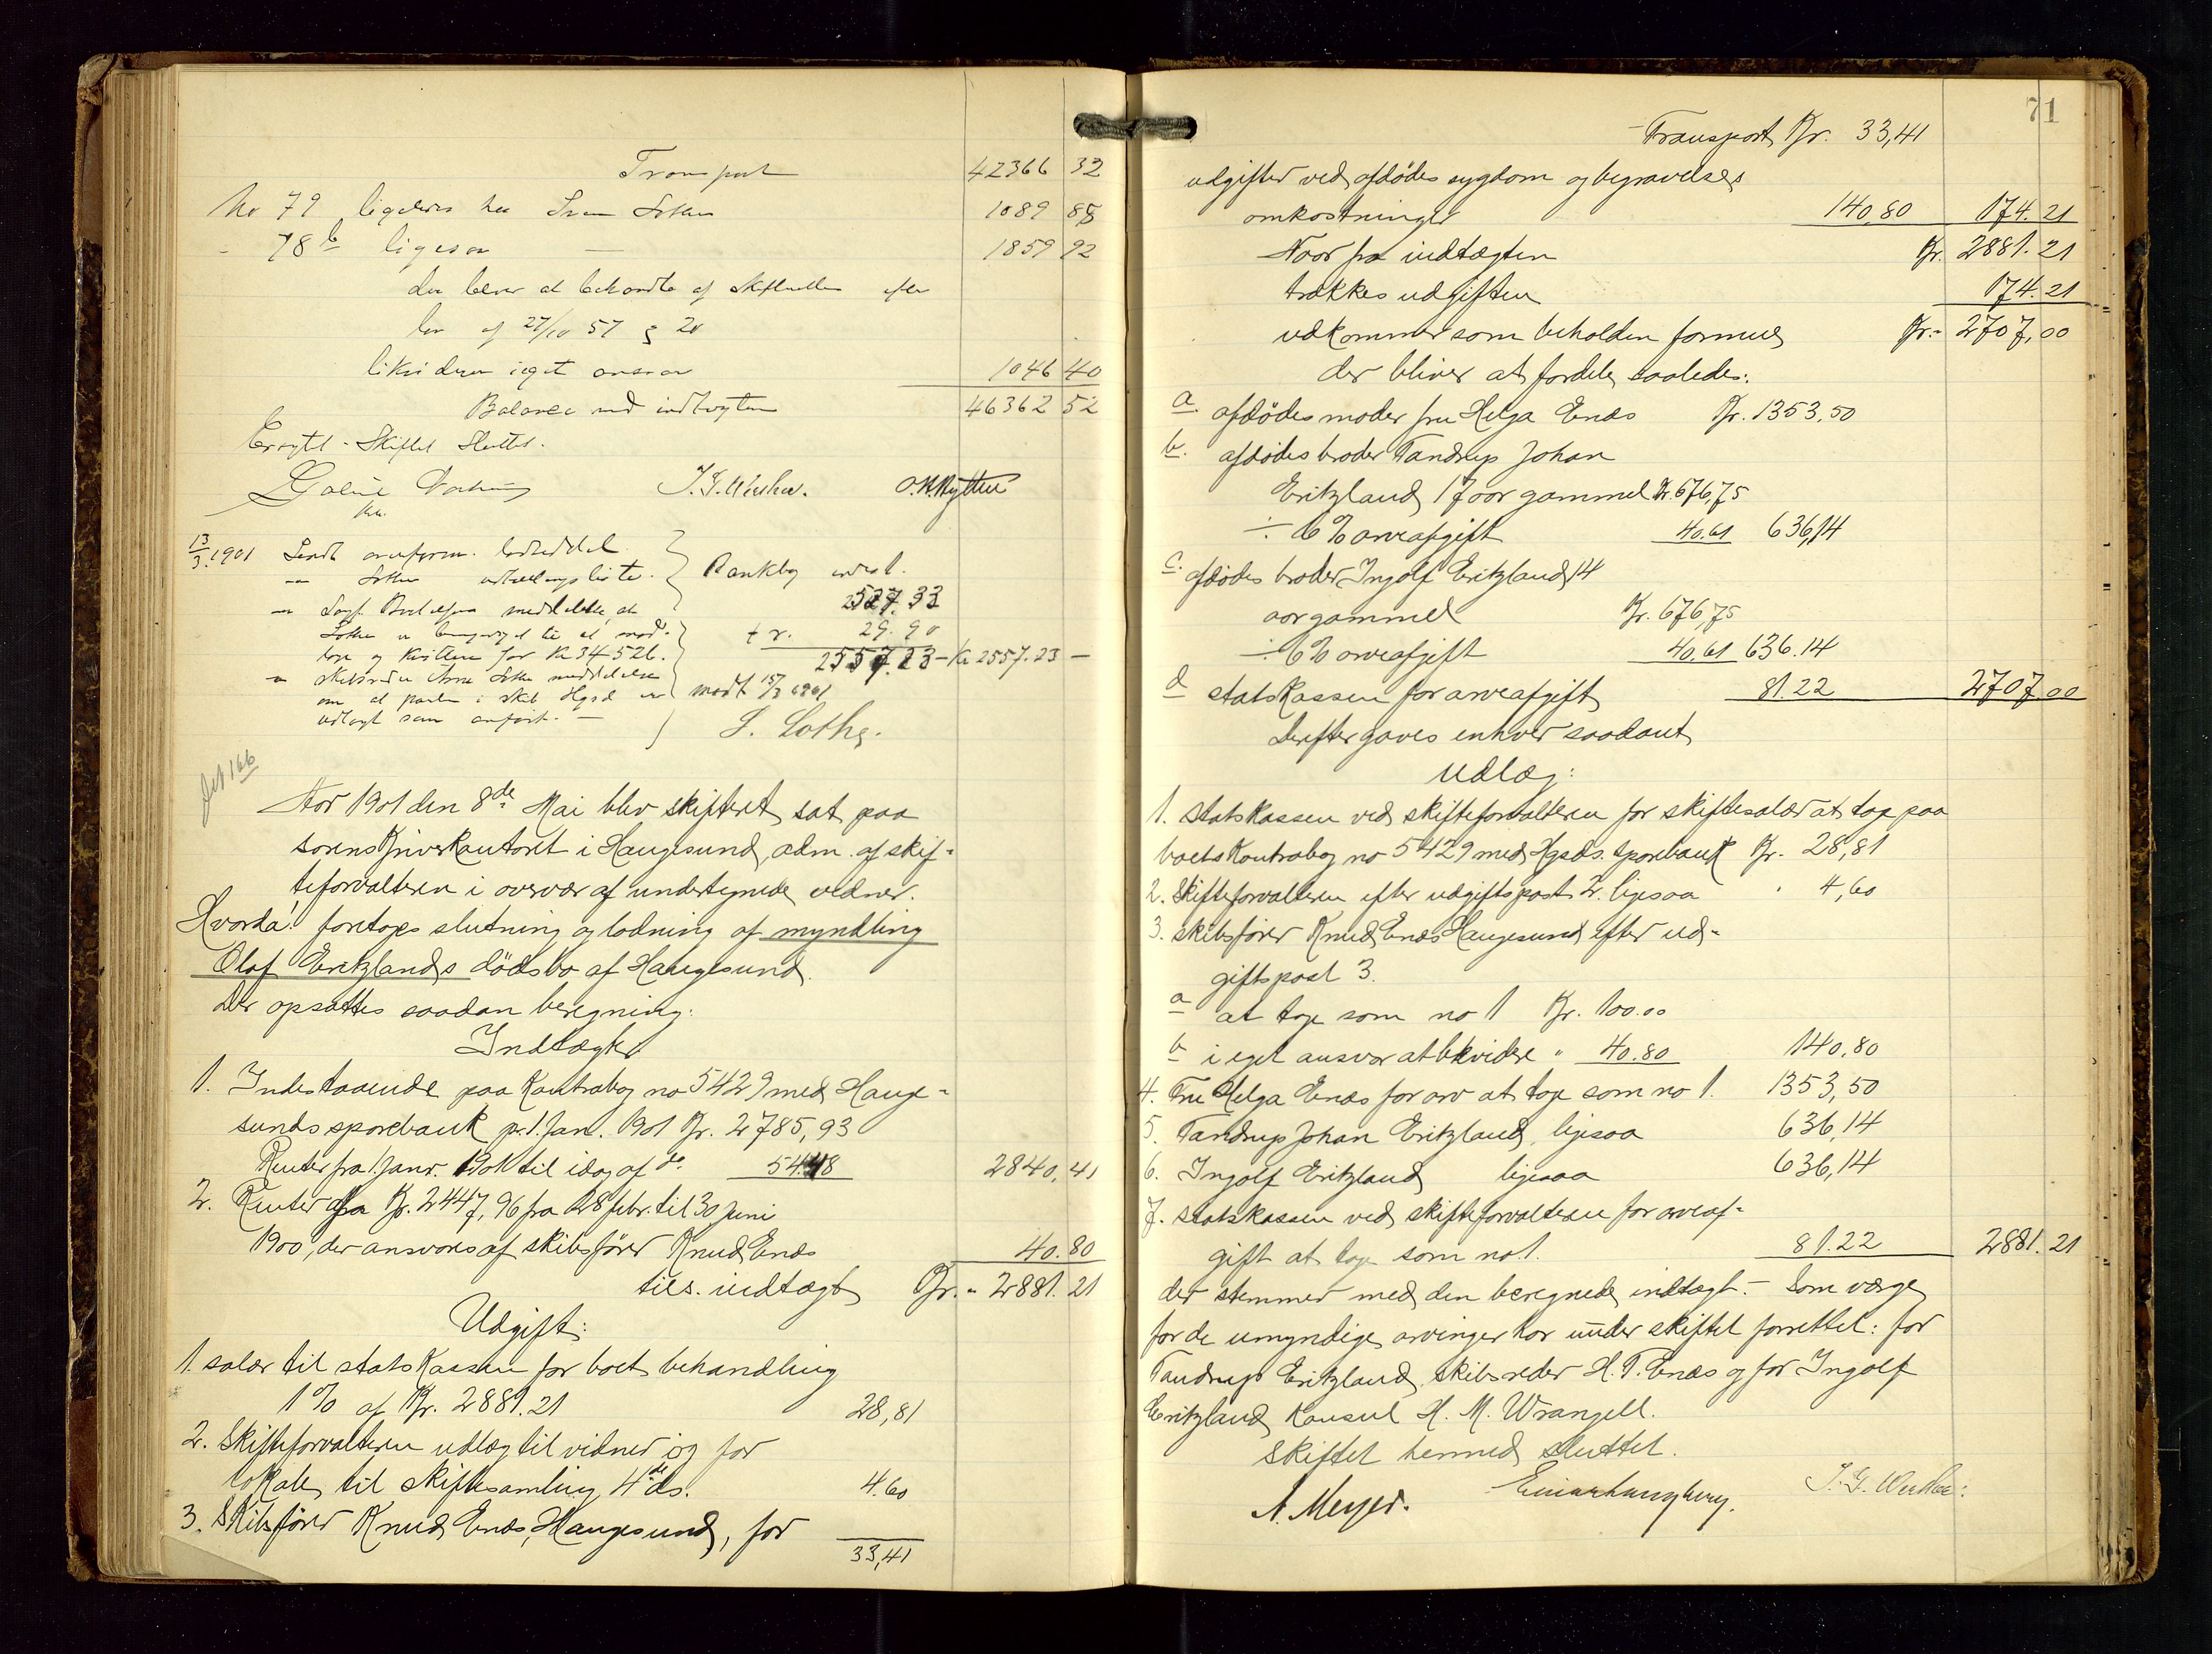 Transport 42366 32
No 79 ligeledes hos 1089 85
- 78 b ligesaa — 1859 92
der bliver at behandle af Skifteretten efter
lov af 27/10 57 § 20
likvidere i eget ansvar 1046 40
Balance med indtægten 46362 52
Skiftet sluttet.
O. K. Rytter
13/3.1901 Sendt
Bankbog
2527.33
+ r. 29.90
2557.23 - Kr 2557.23 —
modt 15/3 1901
S. Lothe.
Aar 1901 den 8de Mai blev skifteret sat paa
sorenskriverkontoret i Haugesund, adm. af skif-
teforvalteren i overvær af undertegnede vidner.
Hvorda! foretoges slutning og lodning af myndling
Olaf Eritzlands dødsbo af Haugesund.
Der opsattes saadan beregning:
Indtægter
1. Indestaaende paa Kontrabog no 5429 med Hauge-
sunds sparebank pr. 1. Jan. 1901 Kr. 2785,93
Renter fra 1 Janr. 1901 til idag af do. 54.48 2840,41
2. Renter af Kr. 2447,96 fra 28 febr. til 30 Juni
1900, der ansvares af skibsfører Knud Enæs 40.80
tils. indtægt Kr. - 2881.21
Udgift:
1. salær til statskassen for boets behandling
1% af Kr. 2881.21 28,81
2. Skifteforvalteren udlæg til vidner og for
lokale til skiftesamling 4de ds. 4.60
3. Skibsfører Knud Enæs, Haugesund, for
33,41
71
Transport Kr. 33,41
udgifter ved afdødes sygdom og begravelses
omkostninger 140,80 174.21
Naar fra indtægten Kr. 2881.21
trækkes udgiften 174.21
udkommer som beholden formue Kr.- 2707,00
der bliver at fordele saaledes:
a. afdødes moder fru Helga Enæs Kr. 1353,50
b. afdødes broder Tandrup Johan
Eritzland 17 aar gammel Kr. 676,75
÷ 6% arveafgift 40.61 636,14
c. afdødes broder Ingolf Eritzland 14
aar gammel Kr. 676,75
÷ 6% arveafgift 40,61 636.14
d statskassen for arveafgift 81.22 2707.00
Derefter gaves enhver saadant
Udlæg:
1. statskassen ved skifteforvalteren for skiftesalær at tage paa
boets Kontrabog no 5429 med Hgsds. sparebank Kr. 28,81
2. Skifteforvalteren efter udgiftspost 2. ligesaa " 4,60
3. skibsfører Knud Enæs Haugesund efter ud-
giftspost 3.
a at tage som no 1 Kr. 100.00
b i eget ansvar at likvidere " 40.80 140,80
4. Fru Helga Enæs for arv at tage som no 1. 1353,50
5. Tandrup Johan Eritzland, ligesaa 636,14
6. Ingolf Eritzland ligesaa 636,14
7. statskassen ved skifteforvalteren for arveaf-
gift at tage som no 1. 81.22 2881.21
der stemmer med den beregnede indtægt. - Som værge
for de umyndige arvinger har under skiftet forrettet: for
Tandrup Eritzland, skibsreder H. T. Enæs og for Ingolf
Eritzland Konsul H. M. Wrangell.
Skiftet hermed sluttet.
A. Meyer.